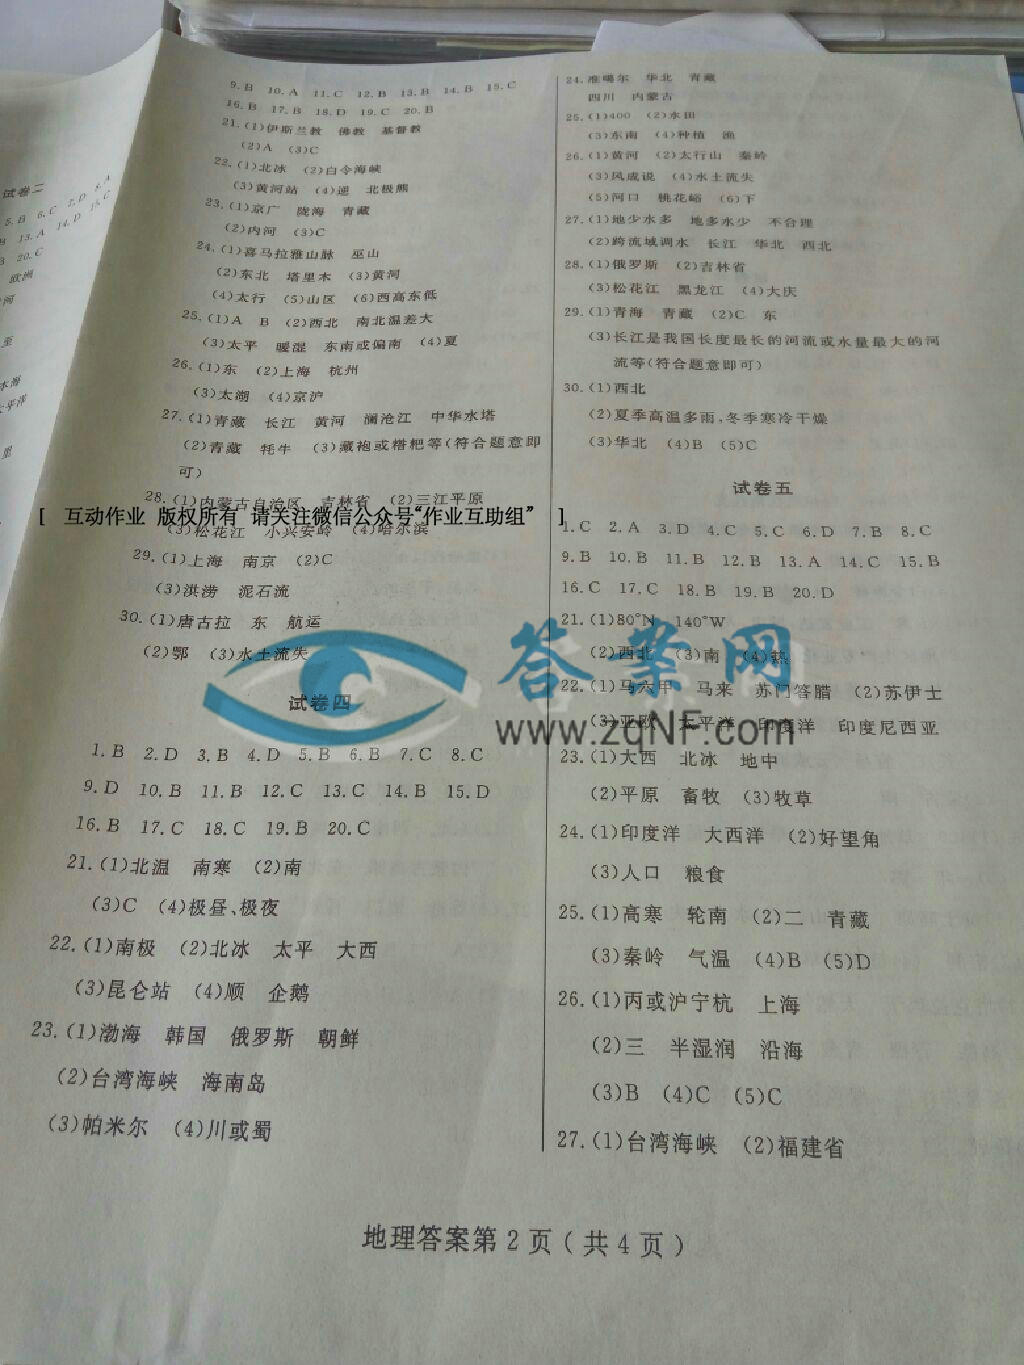 试卷二
5.B 6.C 7.D 8.A
13.A 14.D 15.C
20.C
欧洲
9.B 10.A 11.C 12.B 13.B 14.B 15.C
16.B 17.B 18.D 19.C 20.B
21.(1)伊斯兰教 佛教 基督教
(2)A (3)C
22.(1)北冰 (2)白令海峡
(3)黄河站 (4)逆 北极熊
23.(1)京广 陇海 青藏
(2)内河 (3)C
24.(1)喜马拉雅山脉 巫山
(2)东北 塔里木 (3)黄河
(4)太行 (5)山区 (6)西高东低
25.(1)A B (2)西北 南北温差大
(3)太平 暖湿 东南或偏南 (4)夏
26.(1)东 (2)上海 杭州
(3)太湖 (4)京沪
27.(1)青藏 长江 黄河 澜沧江 中华水塔
(2)青藏 牦牛 (3)藏袍或糌粑等(符合题意即
可)
28.(1)内蒙古自治区 吉林省 (2)三江平原
[ 互动作业 版权所有 请关注微信公众号“作业互助组” ]
(3)松花江 小兴安岭 (4)哈尔滨
29.(1)上海 南京 (2)C
(3)洪涝 泥石流
30.(1)唐古拉 东 航运
(2)鄂 (3)水土流失
试卷四
1.B 2.D 3.B 4.D 5.B 6.B 7.C 8.C
9.D 10.B 11.B 12.C 13.C 14.B 15.D
16.B 17.C 18.C 19.B 20.C
21.(1)北温 南寒 (2)南
(3)C (4)极昼、极夜
22.(1)南极 (2)北冰 太平 大西
(3)昆仑站 (4)顺 企鹅
23.(1)渤海 韩国 俄罗斯 朝鲜
(2)台湾海峡 海南岛
(3)帕米尔 (4)川或蜀
24.准噶尔 华北 青藏
四川 内蒙古
25.(1)400 (2)水田
(3)东南 (4)种植 渔
26.(1)黄河 (2)太行山 秦岭
(3)风成说 (4)水土流失
(5)河口 桃花峪 (6)下
27.(1)地少水多 地多水少 不合理
(2)跨流域调水 长江 华北 西北
28.(1)俄罗斯 (2)吉林省
(3)松花江 黑龙江 (4)大庆
29.(1)青海 青藏 (2)C 东
(3)长江是我国长度最长的河流或水量最大的河
流等(符合题意即可)
30.(1)西北
(2)夏季高温多雨,冬季寒冷干燥
(3)华北 (4)B (5)C
试卷五
1.C 2.A 3.D 4.C 5.C 6.D 7.B 8.C
9.B 10.B 11.B 12.B 13.A 14.C 15.B
16.C 17.C 18.B 19.B 20.D
21.(1)80°N 140°W
(2)西北 (3)南 (4)热
22.(1)马六甲 马来 苏门答腊 (2)苏伊士
(3)亚欧 太平洋 印度洋 印度尼西亚
23.(1)大西 北冰 地中
(2)平原 畜牧 (3)牧草
24.(1)印度洋 大西洋 (2)好望角
(3)人口 粮食
25.(1)高寒 轮南 (2)二 青藏
(3)秦岭 气温 (4)B (5)D
26.(1)丙或沪宁杭 上海
(2)三 半湿润 沿海
(3)B (4)C (5)C
27.(1)台湾海峡 (2)福建省
答案网
www.zqNF.com
地理答案第2页(共4页)